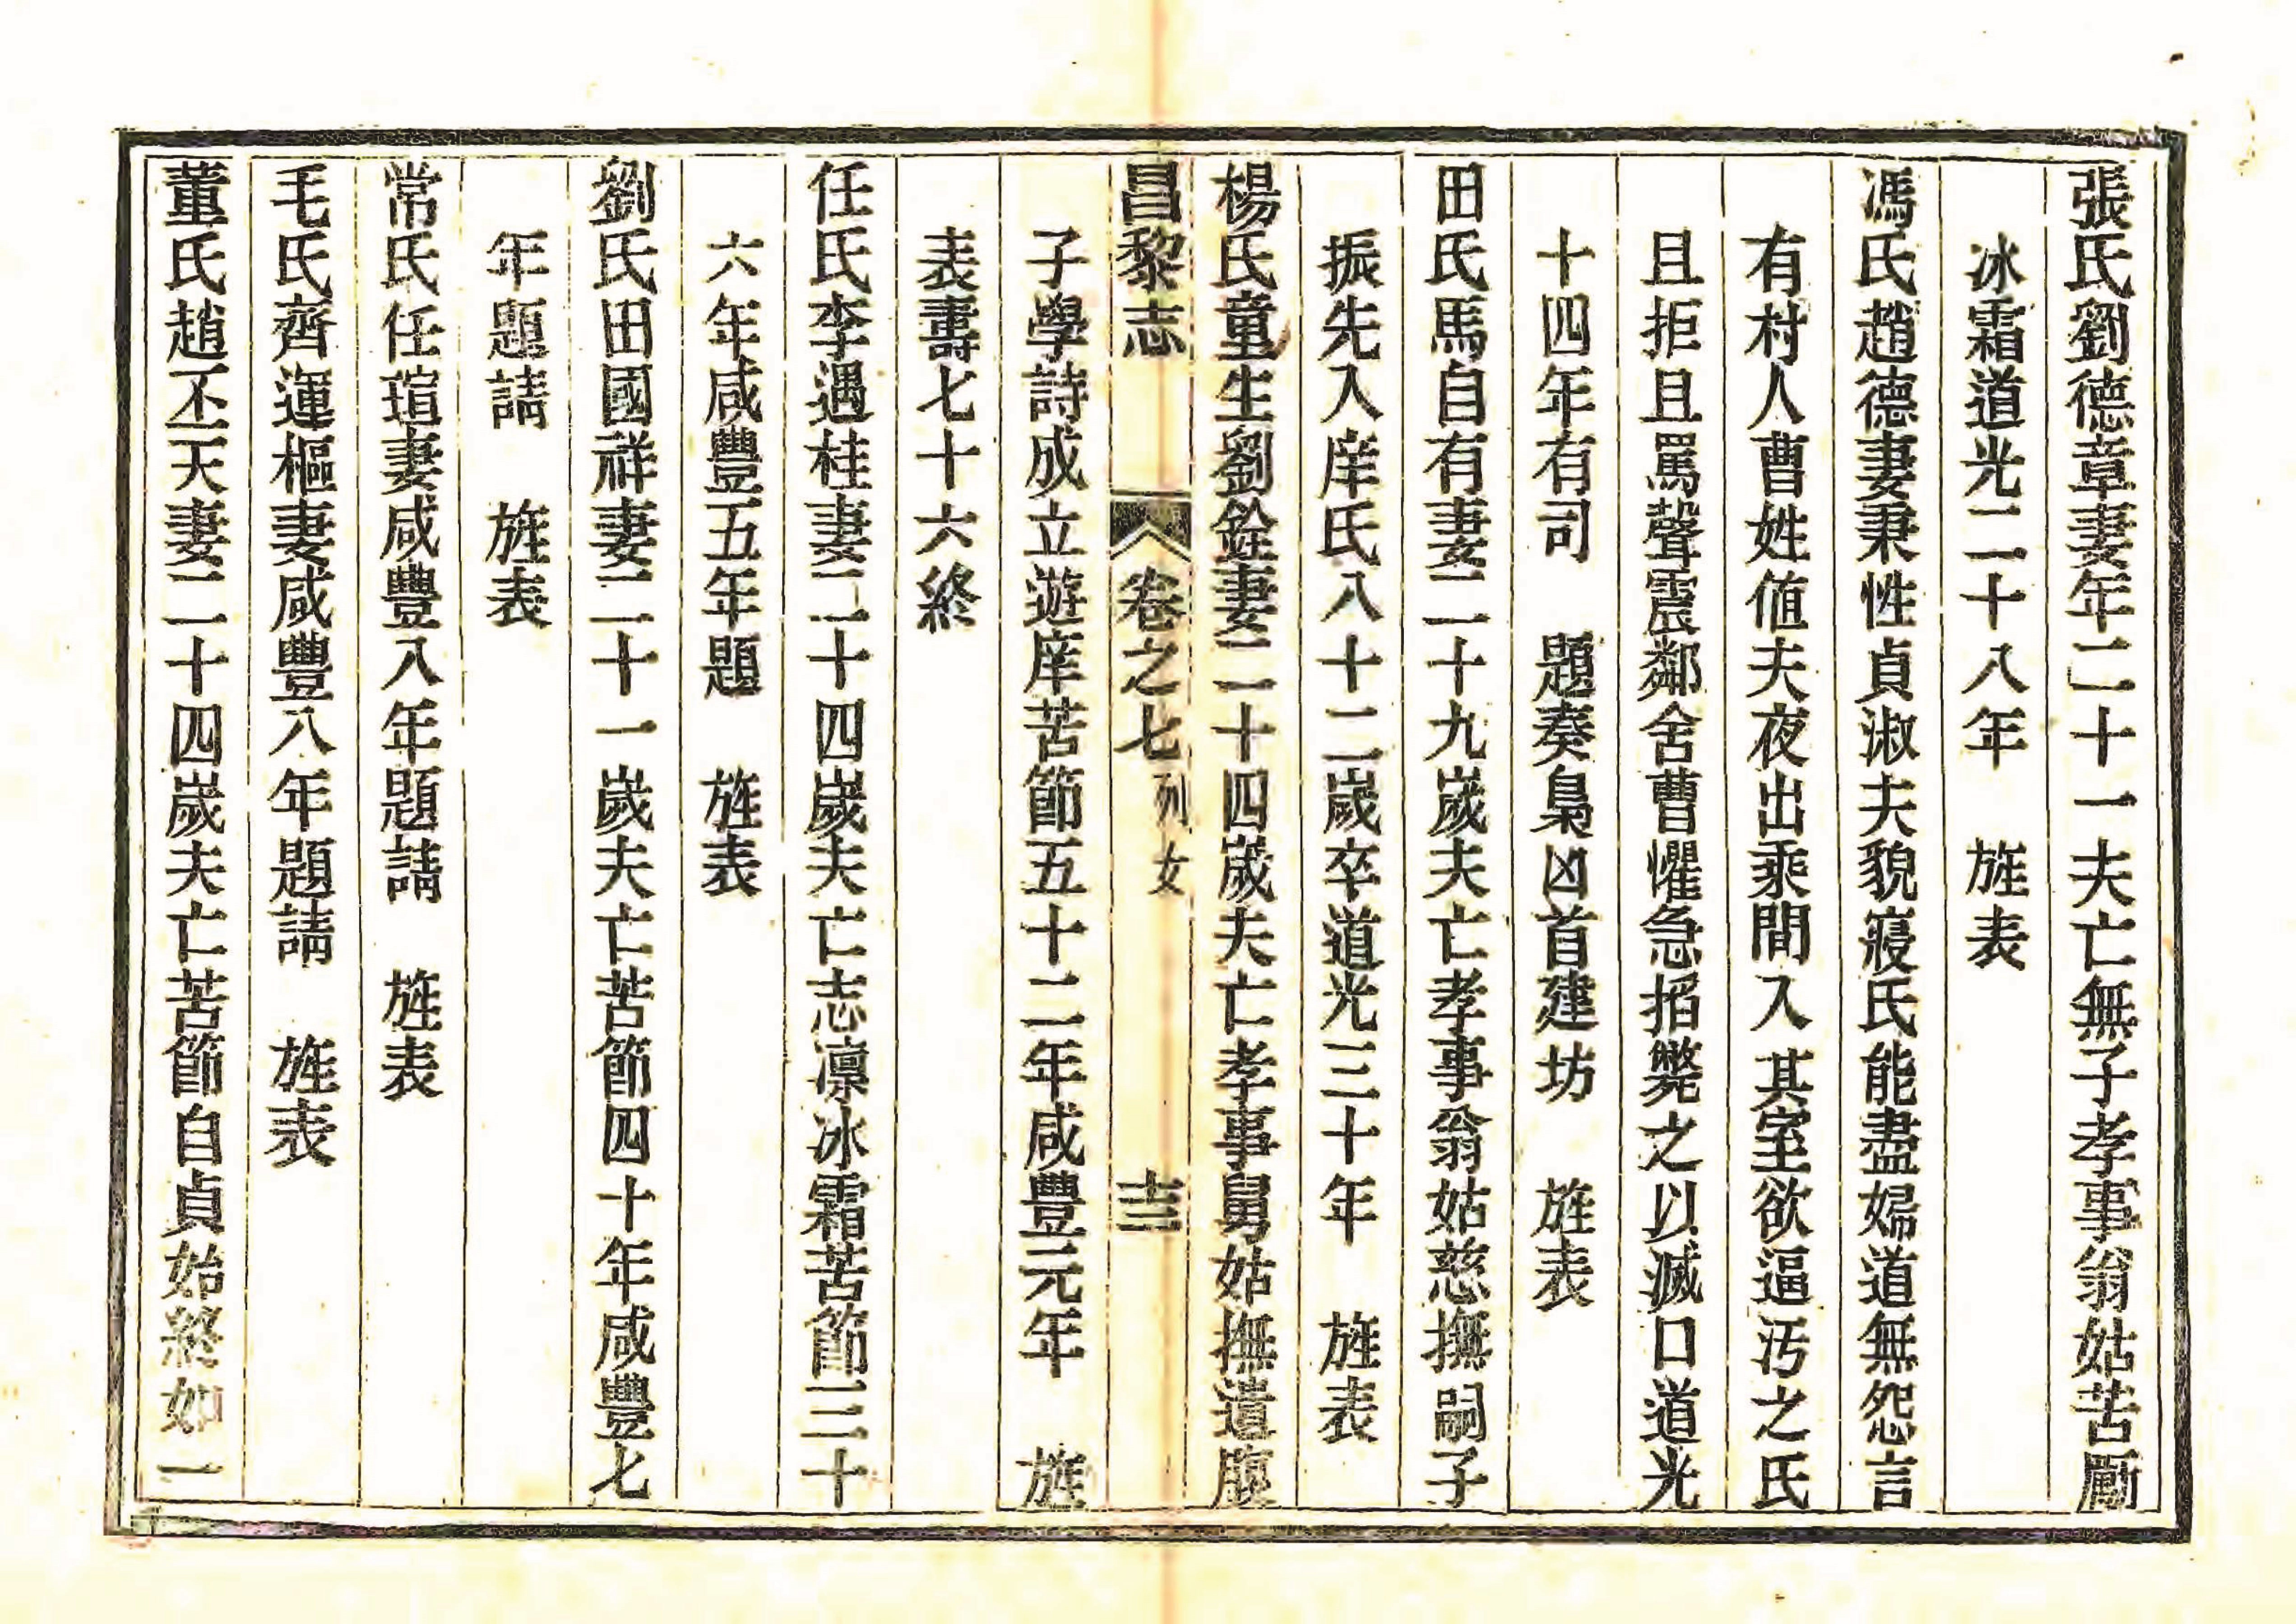 張氏劉德章妻年二十一夫亡無子孝事翁姑苦勵
冰霜道光二十八年　旌表
馮氏趙德妻秉性貞淑夫貌寢氏能盡婦道無怨言
有村人曹姓値夫夜出乘間入其室欲逼汚之氏
且拒且罵聲震鄰舍曹懼急掐斃之以滅口道光
十四年有司　題奏梟凶首建坊　旌表
田氏馬自有妻二十九歲夫亡孝事翁姑慈撫嗣子
振先入庠氏八十二歲卒道光三十年　旌表
楊氏童生劉銓妻二十四歲夫亡孝事舅姑撫遺腹
昌黎志　卷之七列女　十三
子學詩成立遊庠苦節五十二年咸豐元年　旌
表壽七十六終
任氏李遇桂妻二十四歲夫亡志凛冰霜苦節三十
六年咸豐五年題　旌表
劉氏田國祥妻二十一歲夫亡苦節四十年咸豐七
年題請　旌表
常氏任瑄妻咸豐八年題請　旌表
毛氏齊運樞妻咸豐八年題請　旌表
董氏趙丕天妻二十四歲夫亡苦節自貞始終如一